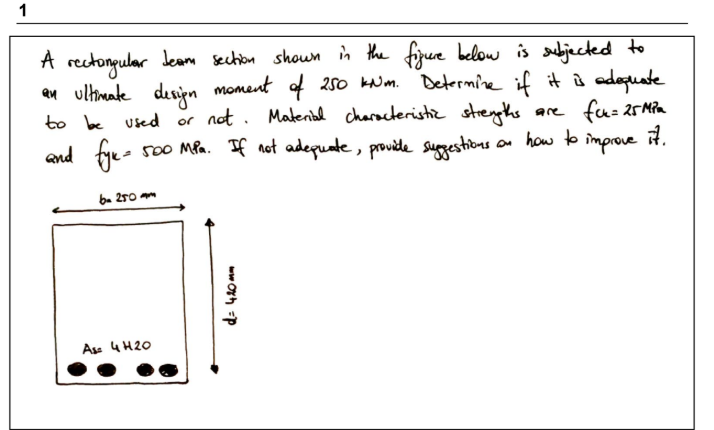 1
A rectangular beam section shown in the figure below is subjected to
an ultimate design moment of 250 kNm. Determine if it is adequate
to be used or not. Material characteristic strengths are fck= 25 MPa
and fyk= 500 MPa. If not adequate, provide suggestions on how to improve it.
b= 250 mm
d= 420 mm
As= 4H20